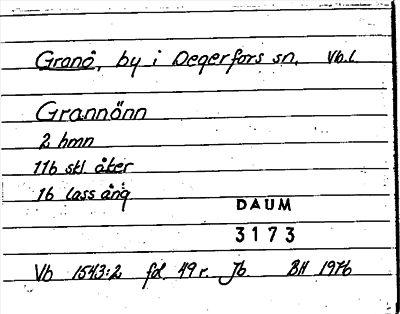 Granö, by i Degerfors sn. Vb.l.
Grannönn
2 hmn
116 skl åker
16 lass äng
DAUM
3173
Vb 1543:2 fol. 49 r. Jb. BH 1976